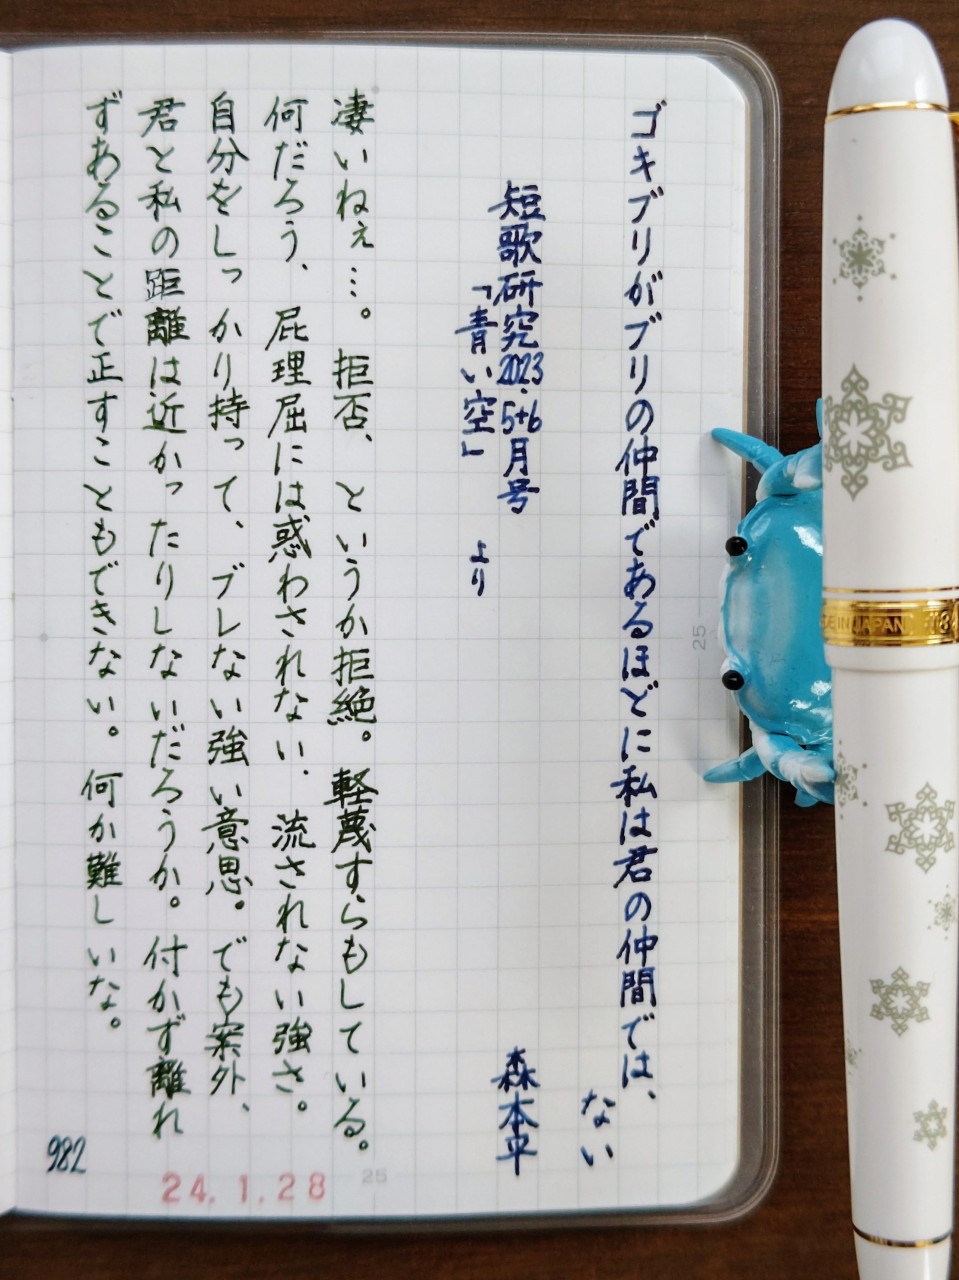 ゴキブリがブリの仲間であるほどに私は君の仲間では、
ない
短歌研究2023.5+6月号
「青い空」 より
森本平
凄いねぇ…。拒否、というか拒絶。軽蔑すらもしている。
何だろう、屁理屈には惑わされない、流されない強さ。
自分をしっかり持って、ブレない強い意思。でも案外、
君と私の距離は近かったりしないだろうか。付かず離れ
ずあることで正すこともできない。何か難しいな。
982
24.1.28
25
25
JAPAN